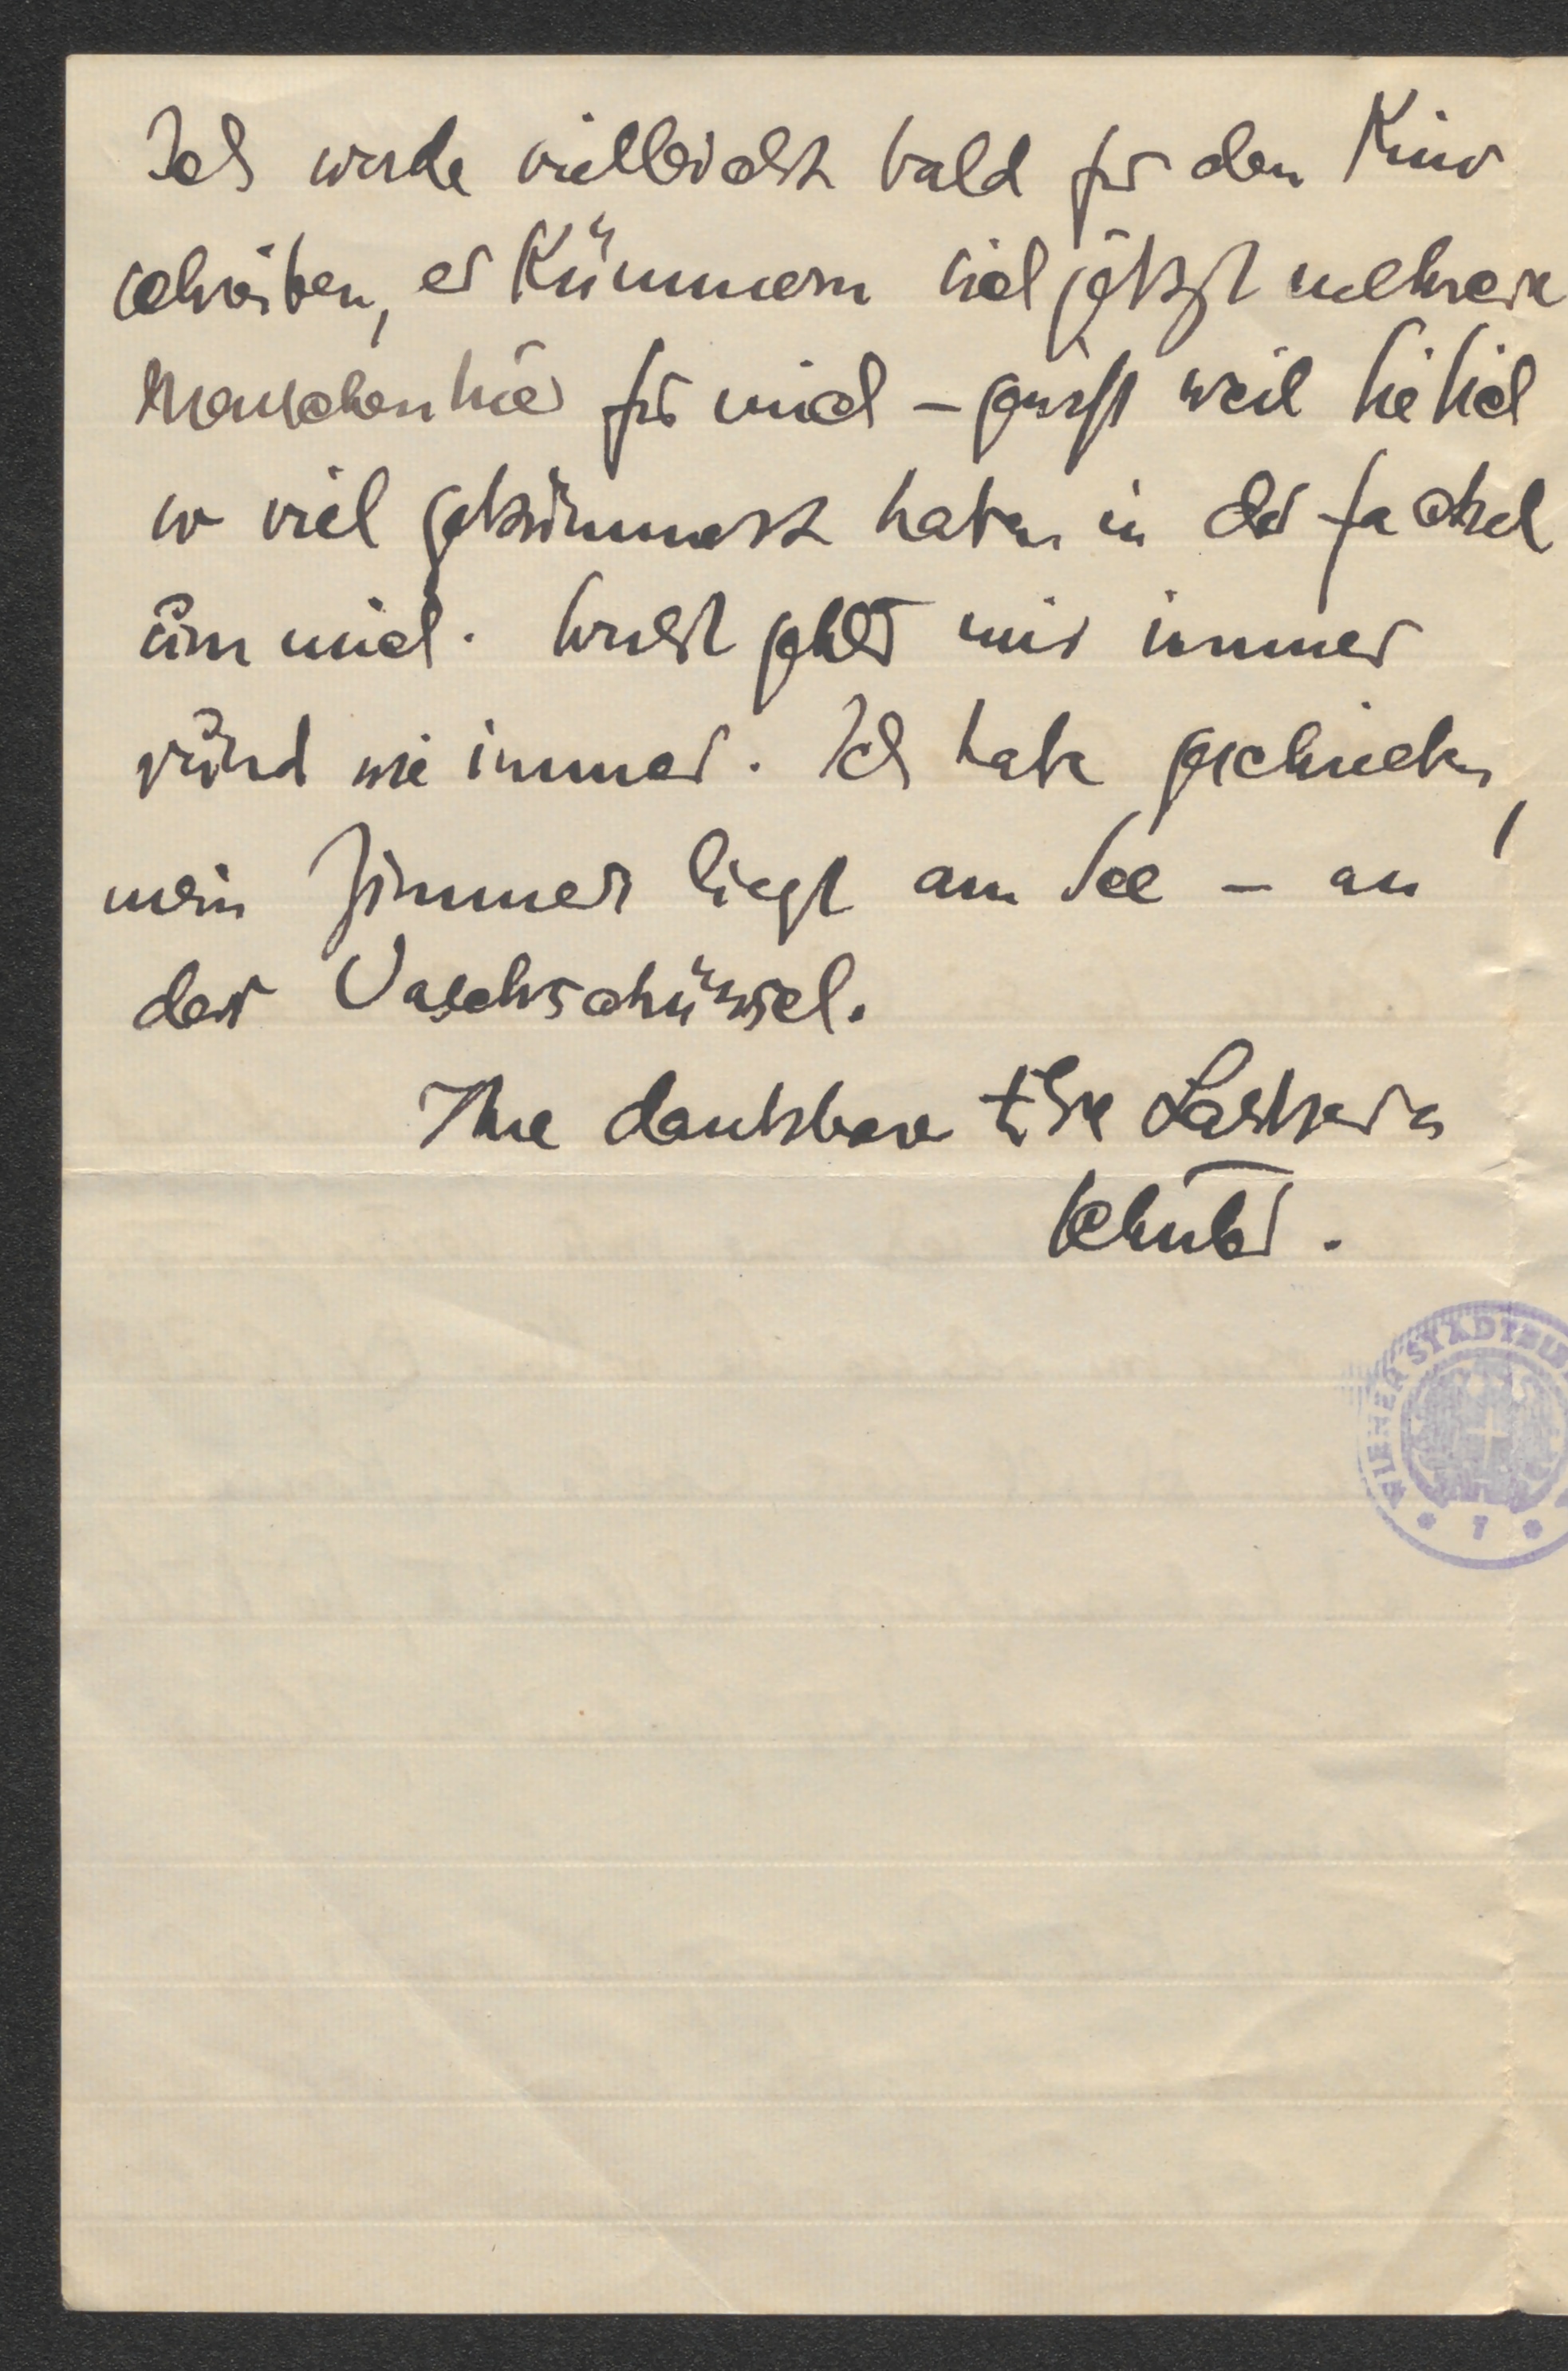 Ich werde vielleicht bald für den Kino
schreiben, es kümmern sich jetzt mehrere
Menschen hier für mich – gewiß weil Sie sich
so viel gekümmert haben in der Fackel
um mich. Sonst geht mir immer
rund wie immer. Ich habe geschrieben,
mein Zimmer liegt am See – an
der Waschschüssel.
Ihre dankbare Else Lasker-
Schüler.
WIENER STADTBI
* 7 *